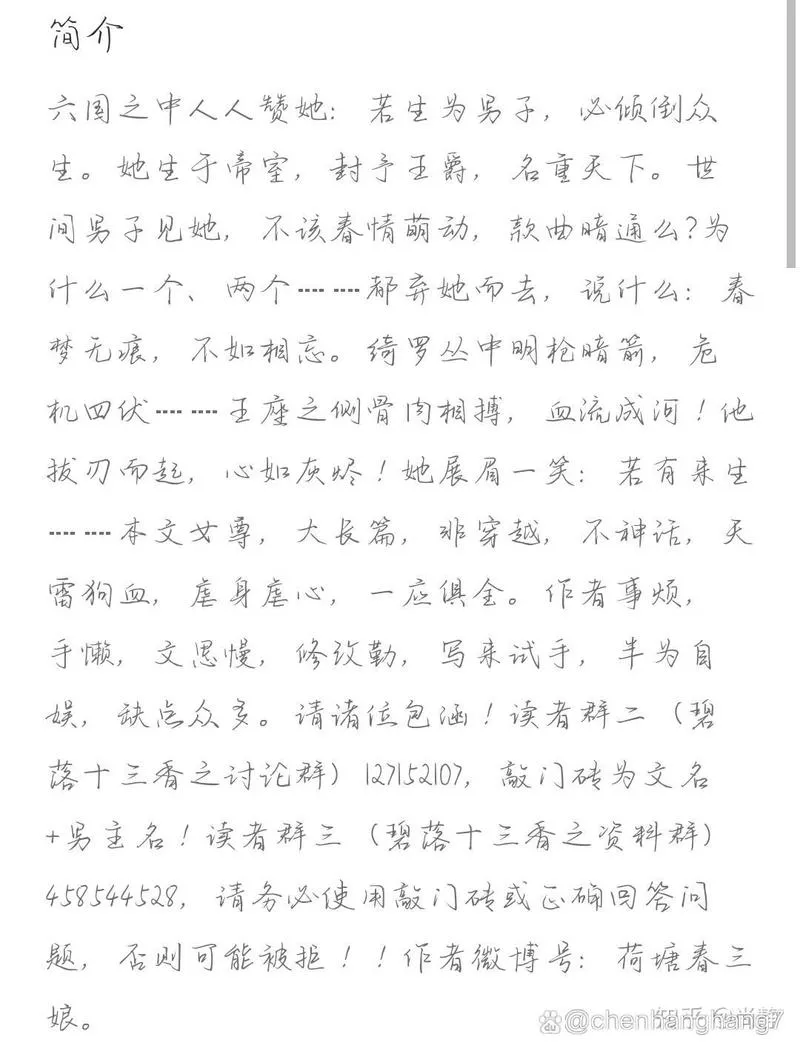 简介
六国之中人人赞她：若生为男子，必倾倒众
生。她生于帝室，封予王爵，名重天下。世
间男子见她，不该春情萌动，款曲暗通么?为
什么一个、两个┅┅都弃她而去，说什么：春
梦无痕，不如相忘。绮罗丛中明枪暗箭，危
机四伏┅┅王座之侧骨肉相搏，血流成河！他
拔刃而起，心如灰烬！她展眉一笑：若有来生
┅┅本文女尊，大长篇，非穿越，不神话，天
雷狗血，虐身虐心，一应俱全。作者事烦，
手懒，文思慢，修改勤，写来试手，半为自
娱，缺点众多。请诸位包涵！读者群二（碧
落十三香之讨论群）127152107，敲门砖为文名
+男主名！读者群三（碧落十三香之资料群）
458544528，请务必使用敲门砖或正确回答问
题，否则可能被拒！！作者微博号：荷塘春三
娘。
知乎
@chenhanghang7